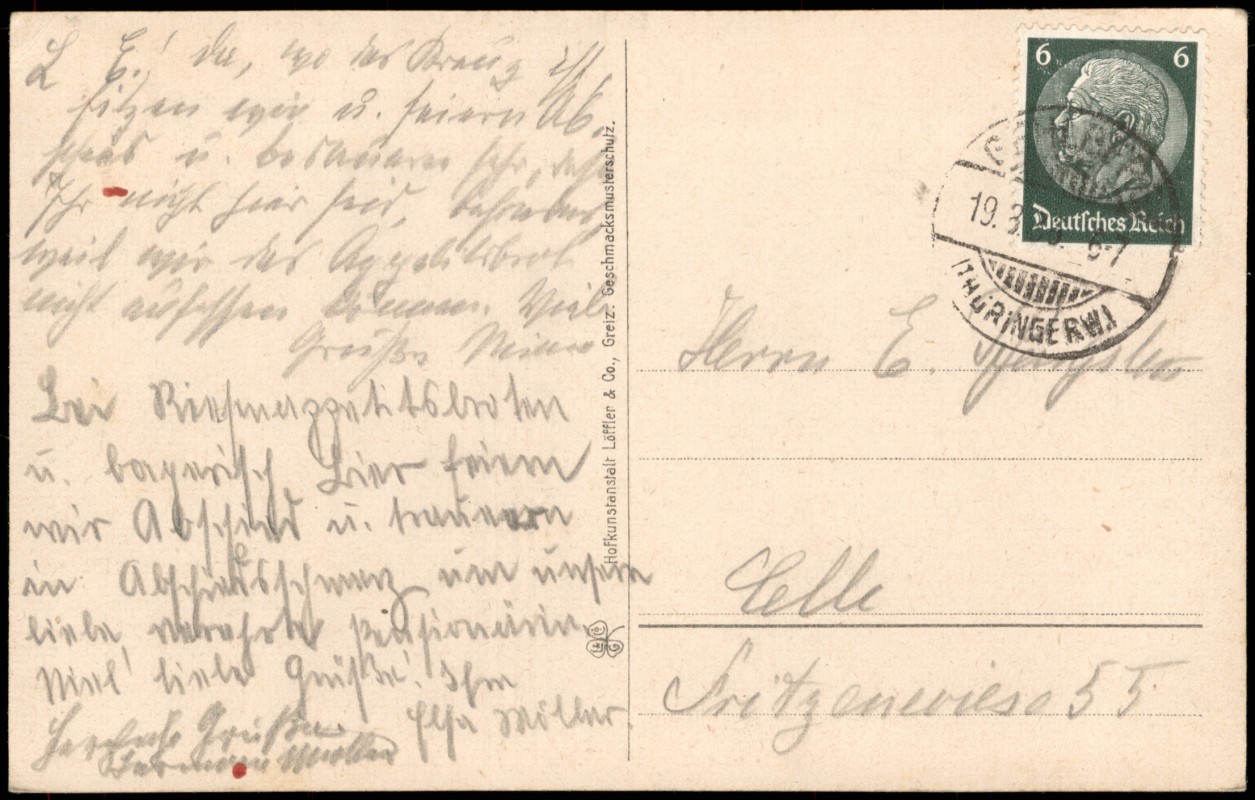 L E.! da, wo das Kreuz ist
sitzen wir u. feiern Ab-
schied u. bedauern sehr, daß
Ihr nicht hier seid, besonders
weil wir das Appetitsbrot
nicht aufessen können. Viele
Grüße
Bei Riesenappetitsbroten
u. bayerisch Bier feiern
wir Abschied u. trauern
in Abschiedsschmerz um unsere
liebe, verehrte Pensionärin.
Viel liebe Grüße! Ihre
Elsa Möller.
Herzliche Grüße
Hermann Möller
Hofkunstanstalt Löffler & Co., Greiz. Geschmacksmusterschutz.
6 6
Deutsches Reich
19.3. 6-7
(THÜRINGERW.)
Herrn E.
Celle
Fritzenwiese 55.